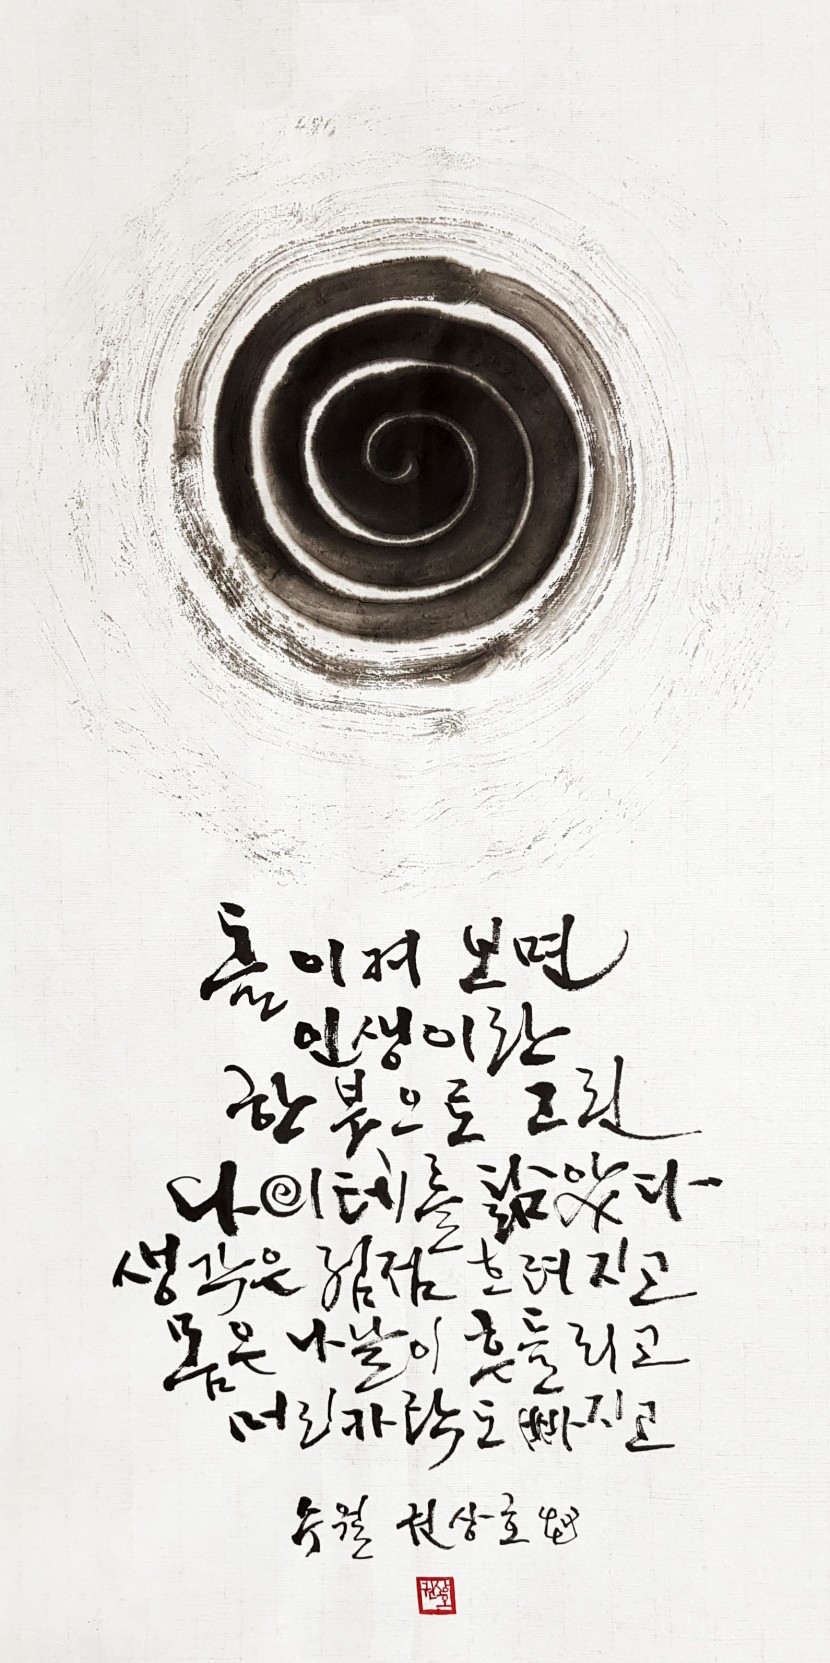 톺이켜 보면
인생이란
한 붓으로 그린
나이테를 닮았다
생각은 점점 흐려지고
몸은 나날이 흔들리고
머리카락도 빠지고
수월 권상호
권상호